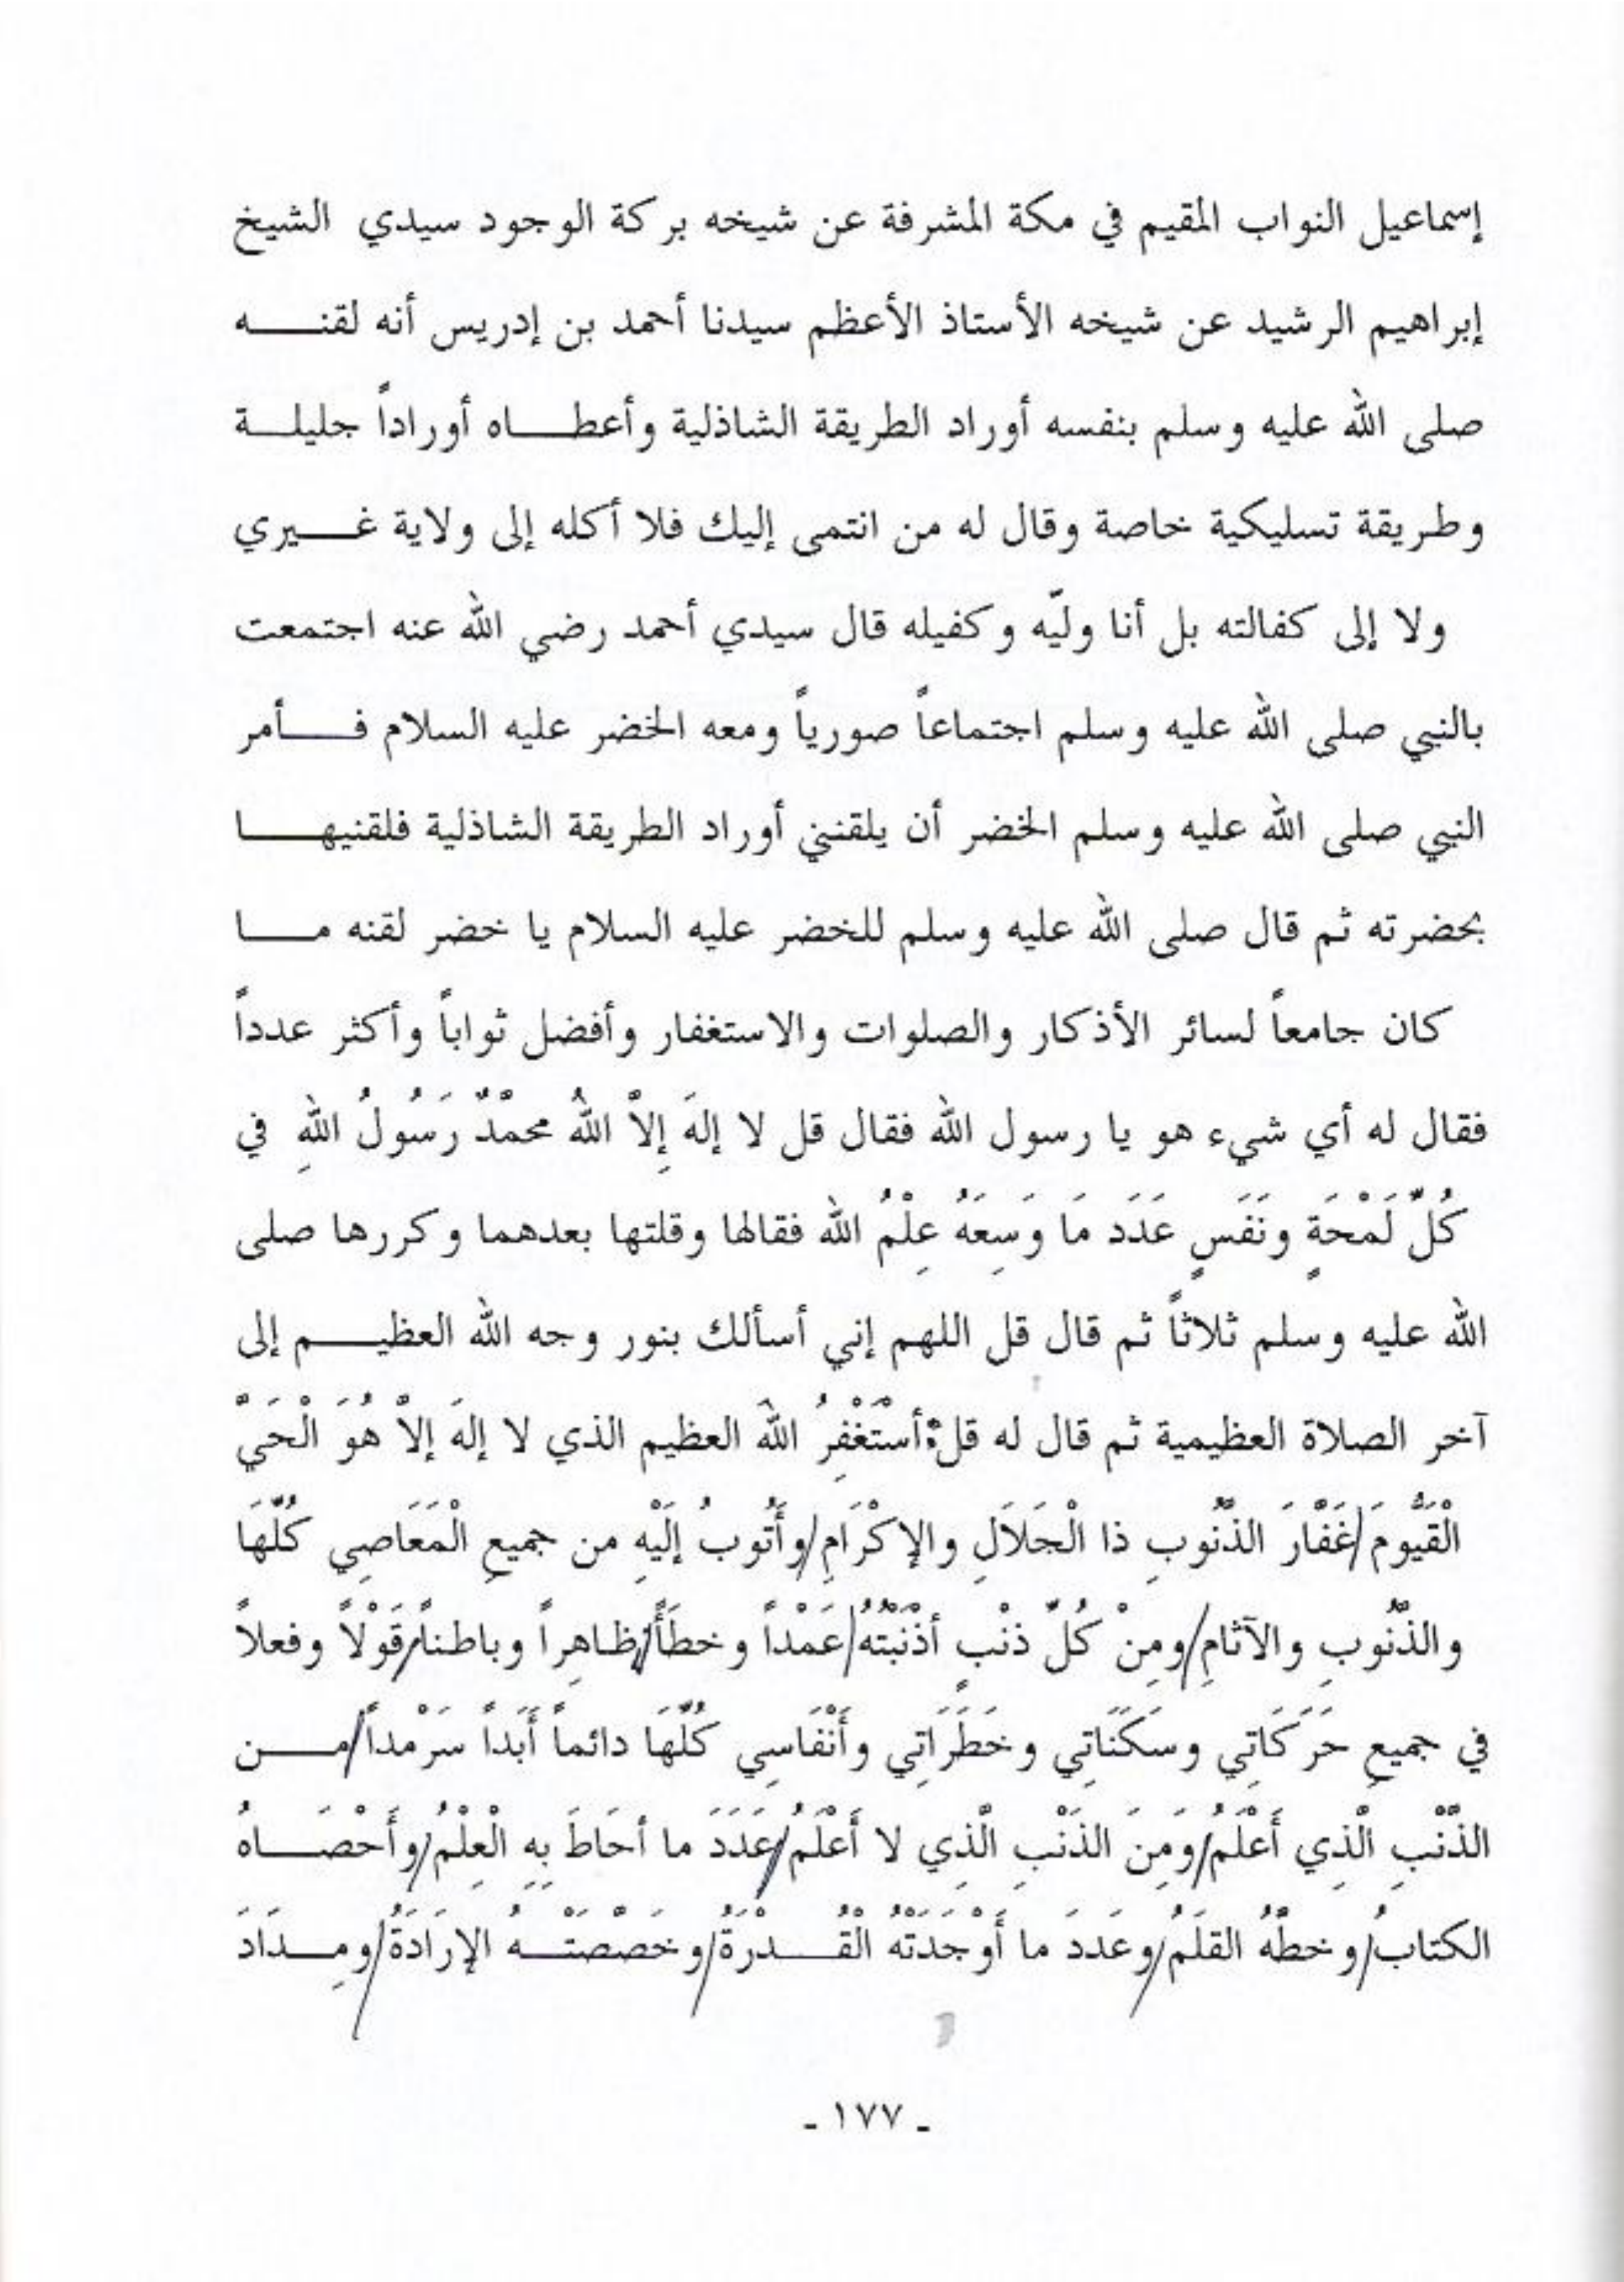 إسماعيل النواب المقيم في مكة المشرفة عن شيخه بركة الوجود سيدي الشيخ
إبراهيم الرشيد عن شيخه الأستاذ الأعظم سيدنا أحمد بن إدريس أنه لقنه
صلى الله عليه وسلم بنفسه أوراد الطريقة الشاذلية وأعطاه أوراداً جليلة
وطريقة تسليكية خاصة وقال له من انتمى إليك فلا أكله إلى ولاية غيري
ولا إلى كفالته بل أنا وليّه وكفيله قال سيدي أحمد رضي الله عنه اجتمعت
بالنبي صلى الله عليه وسلم اجتماعاً صورياً ومعه الخضر عليه السلام فأمر
النبي صلى الله عليه وسلم الخضر أن يلقنني أوراد الطريقة الشاذلية فلقنيها
بحضرته ثم قال صلى الله عليه وسلم للخضر عليه السلام يا خضر لقنه ما
كان جامعاً لسائر الأذكار والصلوات والاستغفار وأفضل ثواباً وأكثر عدداً
فقال له أي شيء هو يا رسول الله فقال قل لا إلهَ إِلاَّ اللهُ محمَّدٌ رَسُولُ اللهِ في
كُلِّ لَمْحَةٍ ونَفَسٍ عَدَدَ مَا وَسِعَهُ عِلْمُ الله فقالها وقلتها بعدهما وكررها صلى
الله عليه وسلم ثلاثاً ثم قال قل اللهم إني أسألك بنور وجه الله العظيم إلى
آخر الصلاة العظيمية ثم قال له قل: أسْتَغْفِرُ اللهَ العظيم الذي لا إلهَ إلاَّ هُوَ الْحَيَّ
الْقَيُّومَ/غَفَّارَ الذُّنُوبِ ذا الْجَلَالِ والإكْرَامِ/وأَتُوبُ إلَيْهِ من جميعِ الْمَعَاصِي كُلِّهَا
والذُّنُوبِ والآثامِ/ومِنْ كُلِّ ذنْبٍ أذْنَبْتُهُ/عَمْداً وخطَأً/ظاهِراً وباطناً/قَوْلاً وفعلاً
في جميعِ حَرَكَاتِي وسَكَنَاتِي وخَطَرَاتِي وأَنْفَاسِي كُلِّهَا دائماً أَبَداً سَرْمداً/من
الذَّنْبِ الَّذِي أَعْلَمُ/وَمِنَ الذَنْبِ الَّذِي لا أَعْلَمُ/عَدَدَ ما أحَاطَ بِهِ الْعِلْمُ/وأَحْصَاهُ
الكتابُ/وخطَّهُ القلَمُ/وعَددَ ما أَوْجَدَتْهُ الْقُدْرَةُ/وخَصَّصَتْهُ الإرَادَةُ/ومِدَادَ
- ١٧٧ -